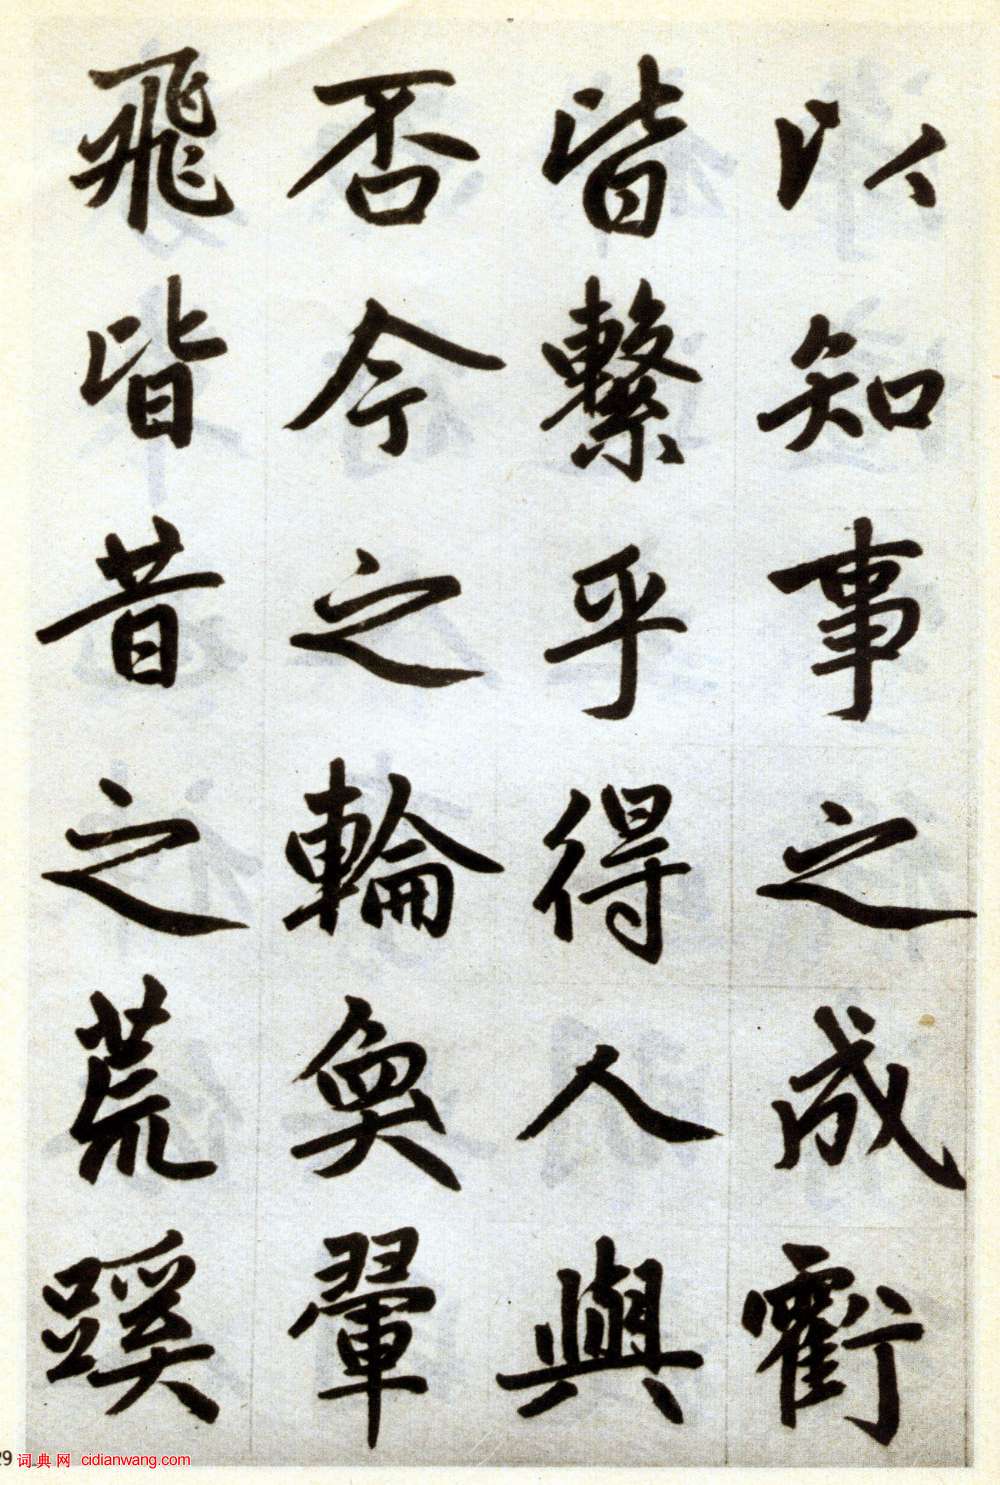 以知事之成虧
皆繫乎得人與
否今之輪奐翬
飛皆昔之荒蹊
29 词典网 cidianwang.com